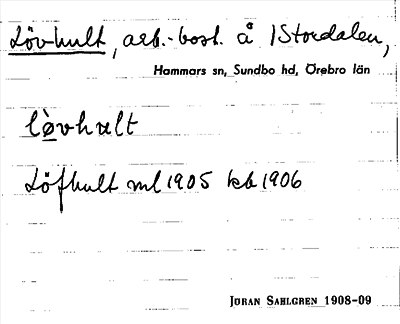 Lövhult, arb.-bost. å 1 Stordalen,
Hammars sn, Sundbo hd, Örebro län
lø̀vhɯlt
Löfhult ml 1905 kb 1906
JÖRAN SAHLGREN 1908-09